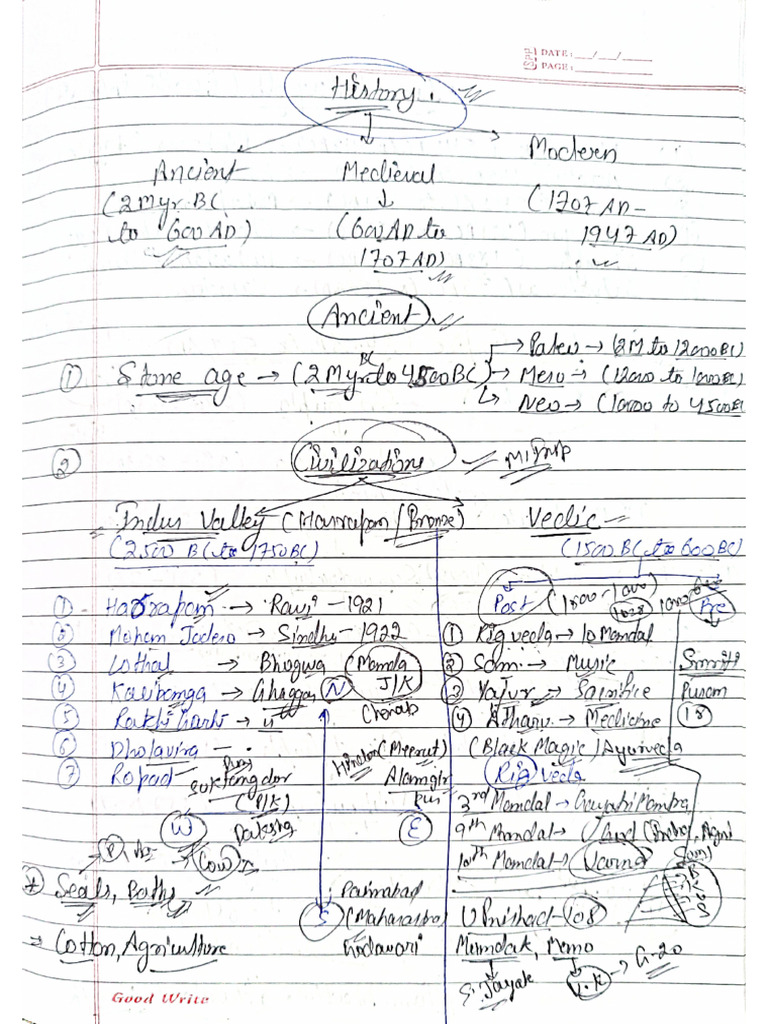 DATE: __/__/__
PAGE:
History
Ancient
Medieval
Modern
(2Myr BC
to 600 AD)
(600 AD to
1707 AD)
(1707 AD -
1947 AD)
Ancient
① Stone age → (2Myr BC to 4500 BC)
→ (2M to 12000 BC)
→ Meso → (12000 to 10000 BC)
→ Neo → (10000 to 4500 BC
② Civilizations
Indus Valley (Harrapan / Bronze)
Vedic
(2500 BC to 1750 BC)
(1500 BC to 600 BC)
① Harrapan → Ravi - 1921
② Moham Jodero → Sindhu - 1922
③ Lothal → Bhogwa
④ Kalibanga → Ghaggar
⑤ Rakhi Garhi → "
⑥ Dholavira - .
⑦ Ropad
Manda
J/K
Chenab
N
Hindon (Meerut)
Alamgir
pur
Suktangdor
(P/K)
W
E
S
Daimabad
(Maharastra)
Godavari
Cow
Seals, Potty
→ Cotton, Agriculture
Post (1500 - 1000)
Pre
① Rigveda → 10 Mandal
② Sam → Music
③ Yajur → Sacrifice
④ Atharv → Medicine
(Black Magic) Ayurveda
Smriti
Puran
18
Rig Veda
3rd Mandal → Gayatri Mantra
9th Mandal →
10th Mandal → Varna
Upnishad - 108
Mundak,
S. Jayate
→ G-20
Good Write